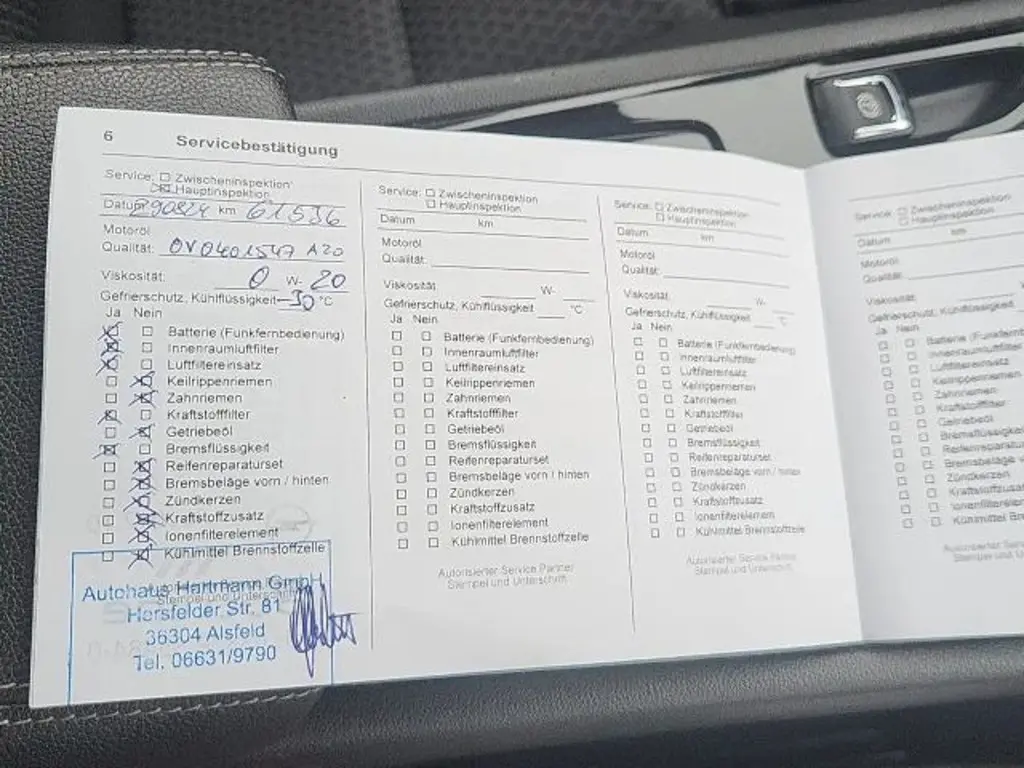 6 Servicebestätigung
Service: Zwischeninspektion
Hauptinspektion
Datum 290824 km 61536
Motoröl
Qualität: 0V0401547 A20
Viskosität: 0 W- 20
Gefrierschutz, Kühlflüssigkeit -30 °C
Ja Nein
Batterie (Funkfernbedienung)
Innenraumluftfilter
Luftfiltereinsatz
Keilrippenriemen
Zahnriemen
Kraftstofffilter
Getriebeöl
Bremsflüssigkeit
Reifenreparaturset
Bremsbeläge vorn / hinten
Zündkerzen
Kraftstoffzusatz
Ionenfilterelement
Kühlmittel Brennstoffzelle
Stempel und Unterschrift
Autohaus Hartmann GmbH
Hersfelder Str. 81
36304 Alsfeld
Tel. 06631/9790
Service: Zwischeninspektion
Hauptinspektion
Datum km
Motoröl
Qualität:
Viskosität: W-
Gefrierschutz, Kühlflüssigkeit °C
Ja Nein
Batterie (Funkfernbedienung)
Innenraumluftfilter
Luftfiltereinsatz
Keilrippenriemen
Zahnriemen
Kraftstofffilter
Getriebeöl
Bremsflüssigkeit
Reifenreparaturset
Bremsbeläge vorn / hinten
Zündkerzen
Kraftstoffzusatz
Ionenfilterelement
Kühlmittel Brennstoffzelle
Autorisierter Service Partner
Stempel und Unterschrift
Service: Zwischeninspektion
Hauptinspektion
Datum km
Motoröl
Qualität:
Viskosität: W-
Gefrierschutz, Kühlflüssigkeit °C
Ja Nein
Batterie (Funkfernbedienung)
Innenraumluftfilter
Luftfiltereinsatz
Keilrippenriemen
Zahnriemen
Kraftstofffilter
Getriebeöl
Bremsflüssigkeit
Reifenreparaturset
Bremsbeläge vorn / hinten
Zündkerzen
Kraftstoffzusatz
Ionenfilterelement
Kühlmittel Brennstoffzelle
Autorisierter Service Partner
Stempel und Unterschrift
Service: Zwischeninspektion
Hauptinspektion
Datum km
Motoröl
Qualität:
Viskosität:
Gefrierschutz, Kühlflüssig
Ja Nein
Batterie (Funkfernbe
Innenraumluftfilter
Luftfiltereinsatz
Keilrippenriemen
Zahnriemen
Kraftstofffilter
Getriebeöl
Bremsflüssigke
Reifenreparatur
Bremsbeläge vo
Zündkerzen
Kraftstoffzusatz
Ionenfilterelem
Kühlmittel Bren
Autorisierter Se
Stempel und